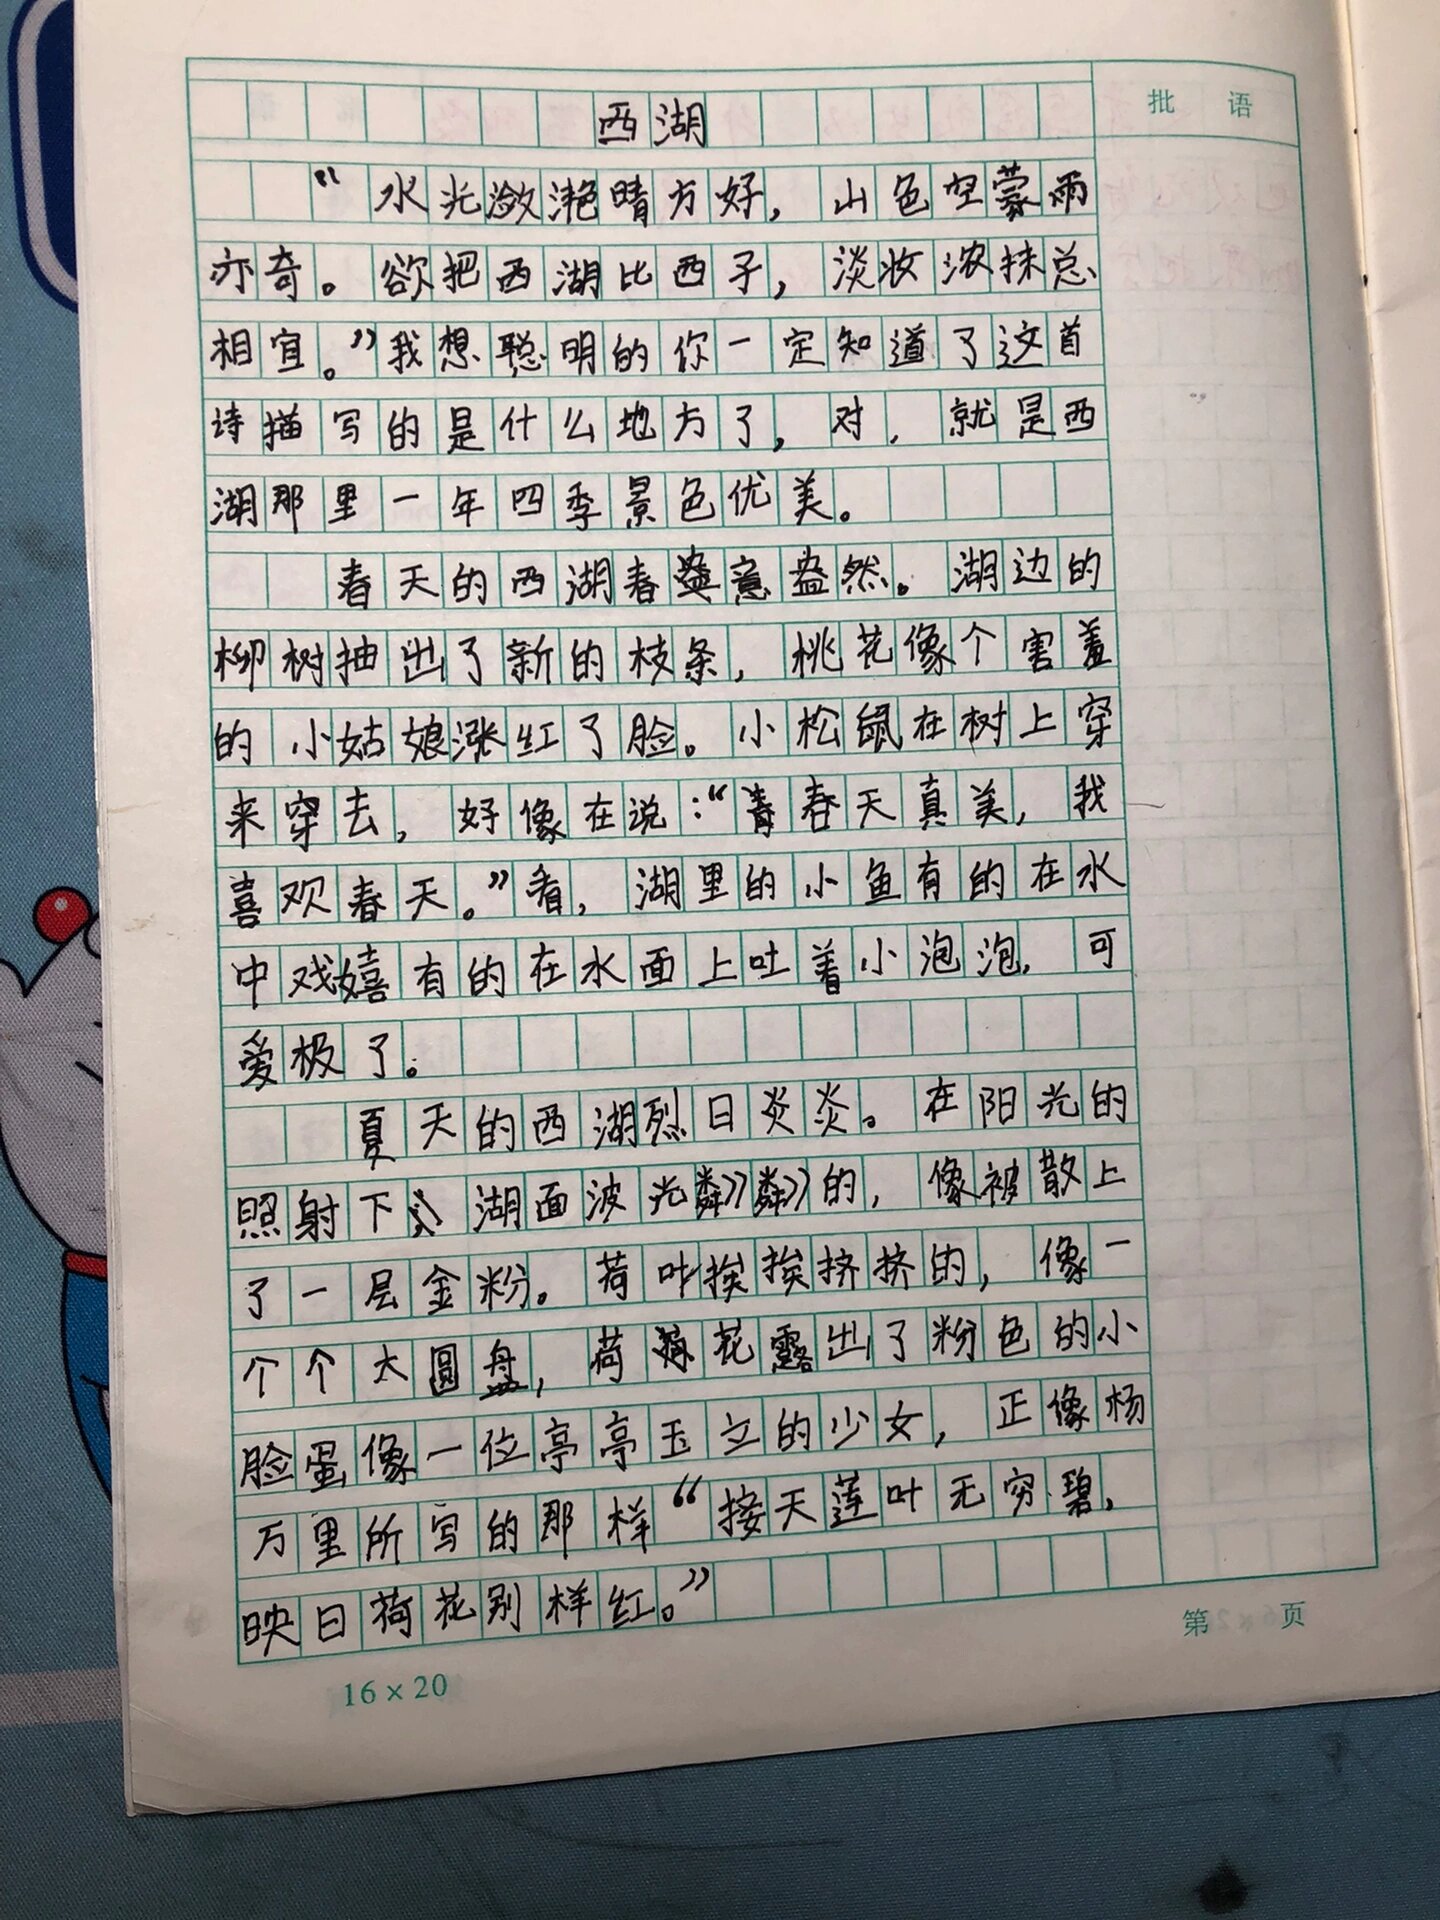 西湖
批 语
“水光潋滟晴方好，山色空蒙雨
亦奇。欲把西湖比西子，淡妆浓抹总
相宜。”我想聪明的你一定知道了这首
诗描写的是什么地方了，对，就是西
湖那里一年四季景色优美。
春天的西湖春意盎然。湖边的
柳树抽出了新的枝条，桃花像个害羞
的小姑娘涨红了脸。小松鼠在树上穿
来穿去，好像在说：“春天真美，我
喜欢春天。”看，湖里的小鱼有的在水
中戏嬉有的在水面上吐着小泡泡，可
爱极了。
夏天的西湖烈日炎炎。在阳光的
照射下，湖面波光粼粼的，像被散上
了一层金粉。荷叶挨挨挤挤的，像一
个个大圆盘，荷花露出了粉色的小
脸蛋像一位亭亭玉立的少女，正像杨
万里所写的那样“接天莲叶无穷碧，
映日荷花别样红。”
16×20
第 页